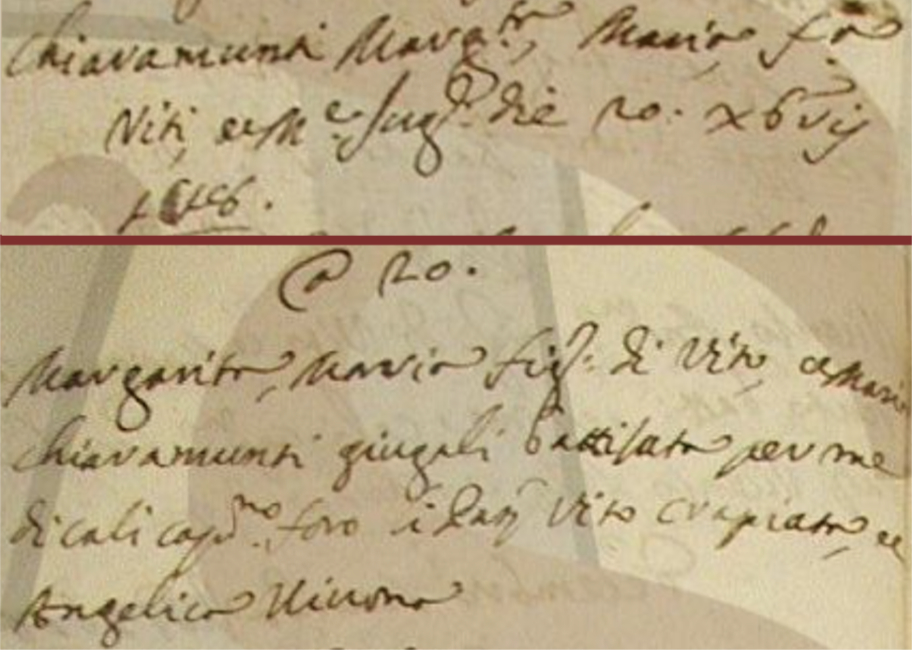 Chiaramunti Marg.ta, Maria, fa
Viti, et M.e Jug.l die 20. Xbris
1646.
@ 20.
Margarita, Maria figl. di Vito, et Maria
Chiaramunti giugali battisata per me
di cali cap.no foro i Pa.ni Vito Crapiata, et
Angelica